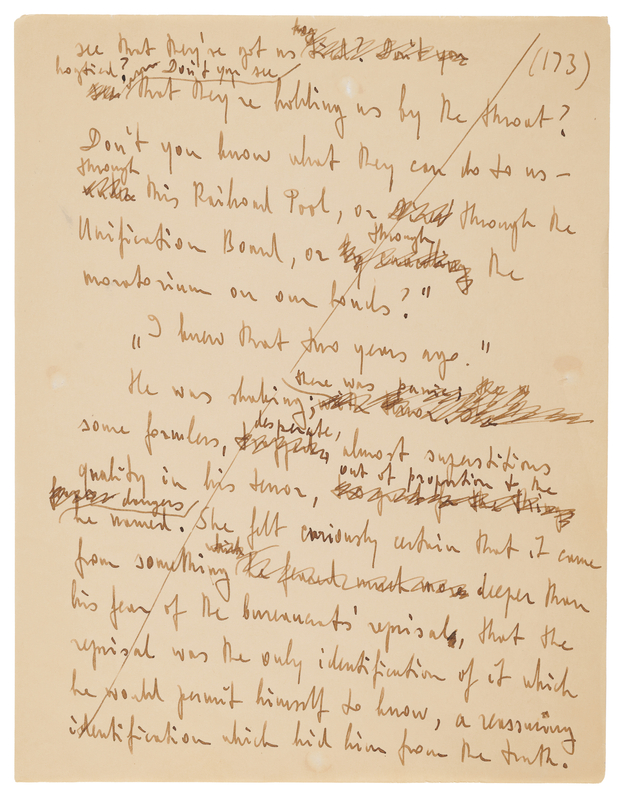 (173)
see that they're got us
hogtied? Don't you see
that they're holding us by the throat?
Don't you know what they can do to us –
through
this Railroad Pool, or through the
through
Unification Board, or the
moratorium on our bonds?"
"I knew that two years ago."
there was
He was shaking;
desperate,
some formless, almost superstitious
out of proportion to the
quality in his terror,
dangers
he named. She felt curiously certain that it came
which
from something deeper than
his fear of the bureaucrats' reprisal, that the
reprisal was the only identification of it which
he would permit himself to know, a reassuring
identification which hid him from the truth.